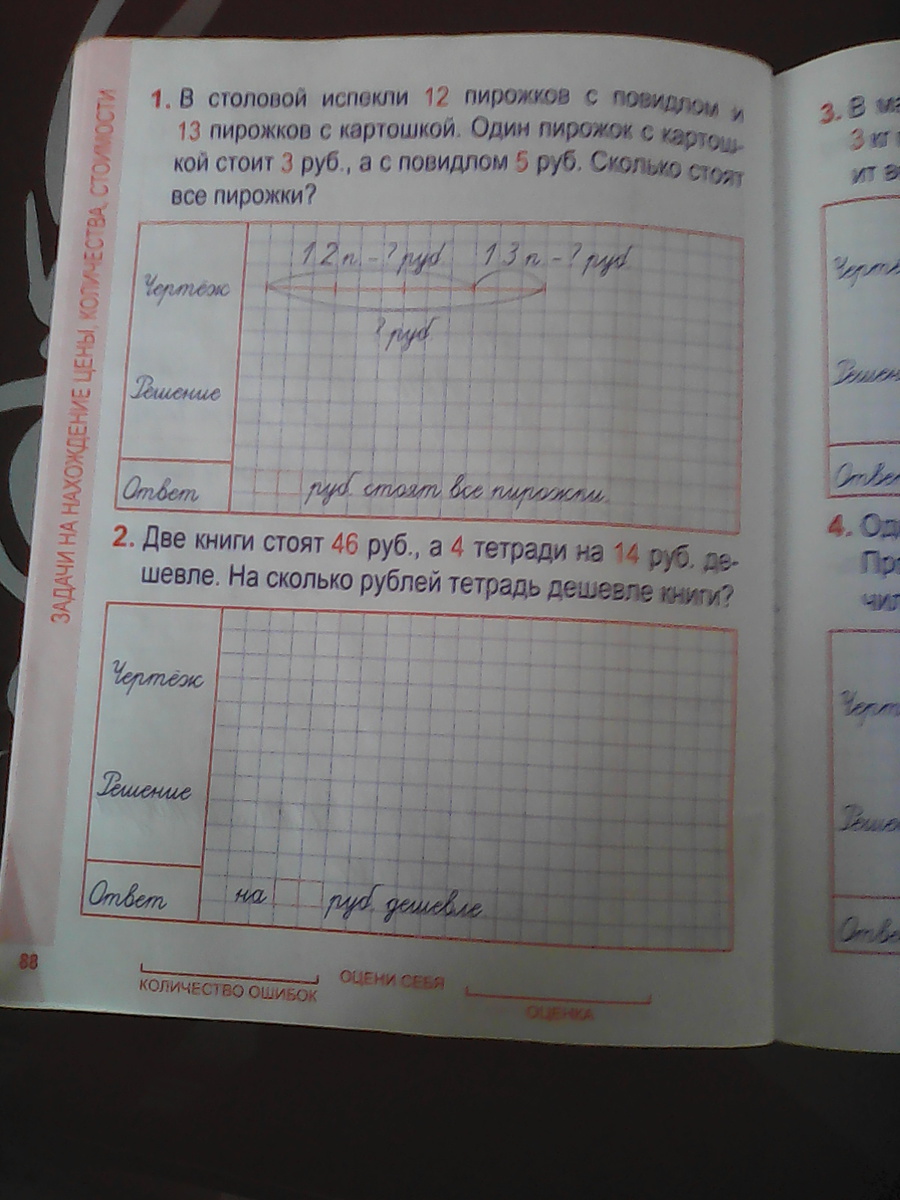 ЗАДАЧИ НА НАХОЖДЕНИЕ ЦЕНЫ, КОЛИЧЕСТВА, СТОИМОСТИ
1. В столовой испекли 12 пирожков с повидлом и
13 пирожков с картошкой. Один пирожок с картош-
кой стоит 3 руб., а с повидлом 5 руб. Сколько стоят
все пирожки?
Чертёж
12 п – ? руб 13 п – ? руб
? руб
Решение
Ответ
руб. стоят все пирожки.
2. Две книги стоят 46 руб., а 4 тетради на 14 руб. де-
шевле. На сколько рублей тетрадь дешевле книги?
Чертёж
Решение
Ответ
на руб. дешевле
88
КОЛИЧЕСТВО ОШИБОК
ОЦЕНИ СЕБЯ
ОЦЕНКА
3. В
3 кг
ит
4.